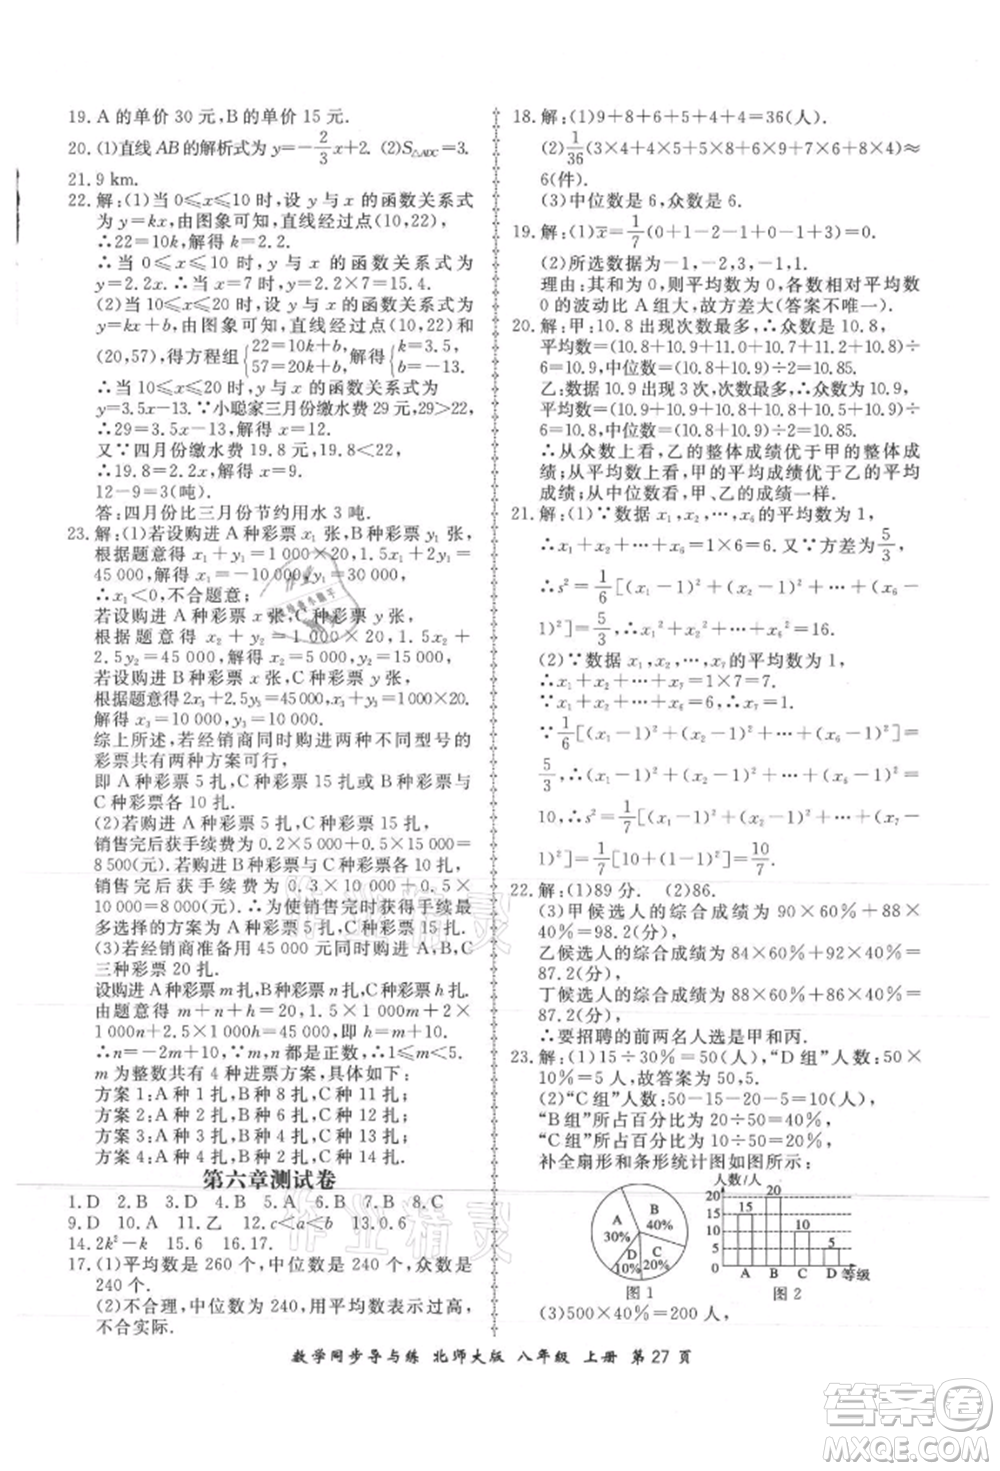 19. A 的单价 30 元,B 的单价 15 元.
20. (1)直线 AB 的解析式为 y=-2/3x+2. (2)S△ADC=3.
21. 9 km.
22. 解:(1)当 0≤x≤10 时,设 y 与 x 的函数关系式
为 y=kx,由图象可知,直线经过点(10,22),
∴22=10k,解得 k=2.2.
∴当 0≤x≤10 时,y 与 x 的函数关系式为
y=2.2x.当 x=7 时,y=2.2×7=15.4.
(2)当 10≤x≤20 时,设 y 与 x 的函数关系式为
y=kx+b,由图象可知,直线经过点(10,22)和
(20,57),得方程组{22=10k+b, 57=20k+b,解得{k=3.5, b=-13.
∴当 10≤x≤20 时,y 与 x 的函数关系式为
y=3.5x-13.∵小聪家三月份缴水费 29 元,29>22,
∴29=3.5x-13.∴x=12.
又∵四月份缴水费 19.8 元,19.8<22,
∴19.8=2.2x.∴x=9.
12-9=3(吨).
答:四月份比三月份节约用水 3 吨.
23. 解:(1)若设购进 A 种彩票 x₁ 张,B 种彩票 y₁ 张,
根据题意得 x₁+y₁=1 000×20,1.5x₁+2y₁=
45 000,解得 x₁=-10 000,y₁=30 000,
∴x₁<0,不合题意.
若设购进 A 种彩票 x₂ 张,C 种彩票 y₂ 张,
根据题意得 x₂+y₂=1 000×20,1.5x₂+
2.5y₂=45 000,解得 x₂=5 000,y₂=15 000.
若设购进 B 种彩票 x₃ 张,C 种彩票 y₃ 张,
根据题意得 2x₃+2.5y₃=45 000,x₃+y₃=1 000×20.
解得 x₃=10 000,y₃=10 000.
综上所述,若经销商同时购进两种不同型号的
彩票共有两种方案可行,
即 A 种彩票 5 扎,C 种彩票 15 扎或 B 种彩票与
C 种彩票各 10 扎.
(2)若购进 A 种彩票 5 扎,C 种彩票 15 扎,
销售完后获手续费为 0.2×5 000+0.5×15 000=
8 500(元).若购进 B 种彩票与 C 种彩票各 10 扎,
销售完后获手续费为 0.3×10 000+0.5×10
000=8 000(元).∴为使销售完时获得手续费最
多选择的方案为 A 种彩票 5 扎,C 种彩票 15 扎.
(3)若经销商准备用 45 000 元同时购进 A、B、C
三种彩票 20 扎.
设购进 A 种彩票 m 扎,B 种彩票 n 扎,C 种彩票 h 扎.
由题意得 m+n+h=20,1.5×1 000m+2×
1 000n+2.5×1 000h=45 000,即 h=m+10,
∴n=-2m+10,∵m、n 都是正数,∴1≤m<5.
m 为整数共有 4 种进票方案,具体如下:
方案 1:A 种 1 扎,B 种 8 扎,C 种 11 扎;
方案 2:A 种 2 扎,B 种 6 扎,C 种 12 扎;
方案 3:A 种 3 扎,B 种 4 扎,C 种 13 扎;
方案 4:A 种 4 扎,B 种 2 扎,C 种 14 扎.
第六章测试卷
1. D 2. B 3. D 4. B 5. A 6. D 7. B 8. C
9. D 10. A 11. 乙 12. c<a<b 13. 0.6
14. 2k²-k 15. 6 16. 17.
17. (1)平均数是 260 个,中位数是 240 个,众数是
240 个.
(2)不合理,中位数为 240,用平均数表示过高,
不合实际.
18. 解:(1)9+8+6+5+4+4=36(人),
(2)1/36(3×4+4×5+5×6+6×9+7×8+8×4)≈
6(件).
(3)中位数是 6,众数是 6.
19. 解:(1)x̄=1/7(0+1-2-1+0-1+3)=0.
(2)所选数据为-1,-2,3,-1,1.
理由:其和为 0,则平均数为 0,各数相对平均数
0 的波动比 A 组大,故方差大(答案不唯一).
20. 解:甲:10.8 出现次数最多,∴众数是 10.8,
平均数=(10.8+10.9+11.0+10.7+11.2+10.8)÷
6=10.9,中位数=(10.8+10.9)÷2=10.85.
乙:数据 10.9 出现 3 次,次数最多,∴众数为 10.9,
平均数=(10.9+10.9+10.8+10.8+10.5+10.9)÷
6=10.8,中位数=(10.8+10.9)÷2=10.85.
∴从众数上看,甲的整体成绩优于乙的整体成
绩;从平均数上看,甲的平均成绩优于乙的平均
成绩;从中位数看,甲、乙的成绩一样.
21. 解:(1)∵数据 x₁,x₂,…,x₆ 的平均数为 1,
∴x₁+x₂+…+x₆=1×6=6.又∵方差为5/3,
∴s²=1/6[(x₁-1)²+(x₂-1)²+…+(x₆-
1)²]=5/3,∴x₁²+x₂²+…+x₆²=16.
(2)∵数据 x₁,x₂,…,x₇ 的平均数为 1,
∴x₁+x₂+…+x₇=1×7=7.
∵x₁+x₂+…+x₆=6,∴x₇=1.
∵1/6[(x₁-1)²+(x₂-1)²+…+(x₆-1)²]=
5/3,∴(x₁-1)²+(x₂-1)²+…+(x₆-1)²=
10,∴s²=1/7[(x₁-1)²+(x₂-1)²+…+(x₇-
1)²]=1/7[10+(1-1)²]=10/7.
22. 解:(1)89 分. (2)86.
(3)甲候选人的综合成绩为 90×60%+92×
40%=98.2(分),
乙候选人的综合成绩为 84×60%+92×40%=
87.2(分),
丁候选人的综合成绩为 88×60%+86×40%=
87.2(分),
∴要招聘的前两名人选是甲和丙.
23. 解:(1)15÷30%=50(人),“D 组”人数:50×
10%=5(人).故答案为 50,5.
(2)“C 组”人数:50-15-20-5=10(人),
“B 组”所占百分比为 20÷50=40%,
“C 组”所占百分比为 10÷50=20%,
补全扇形和条形统计图如图所示:
A
30%
B
40%
D
10%
C
20%
图 1
人数/人
20
15
10
5
0
15
20
10
5
A B C D 等级
图 2
(3)500×40%=200 人,
数学同步导与练 北师大版 八年级 上册 第27页
作业精灵
答案圈
MXQE.COM